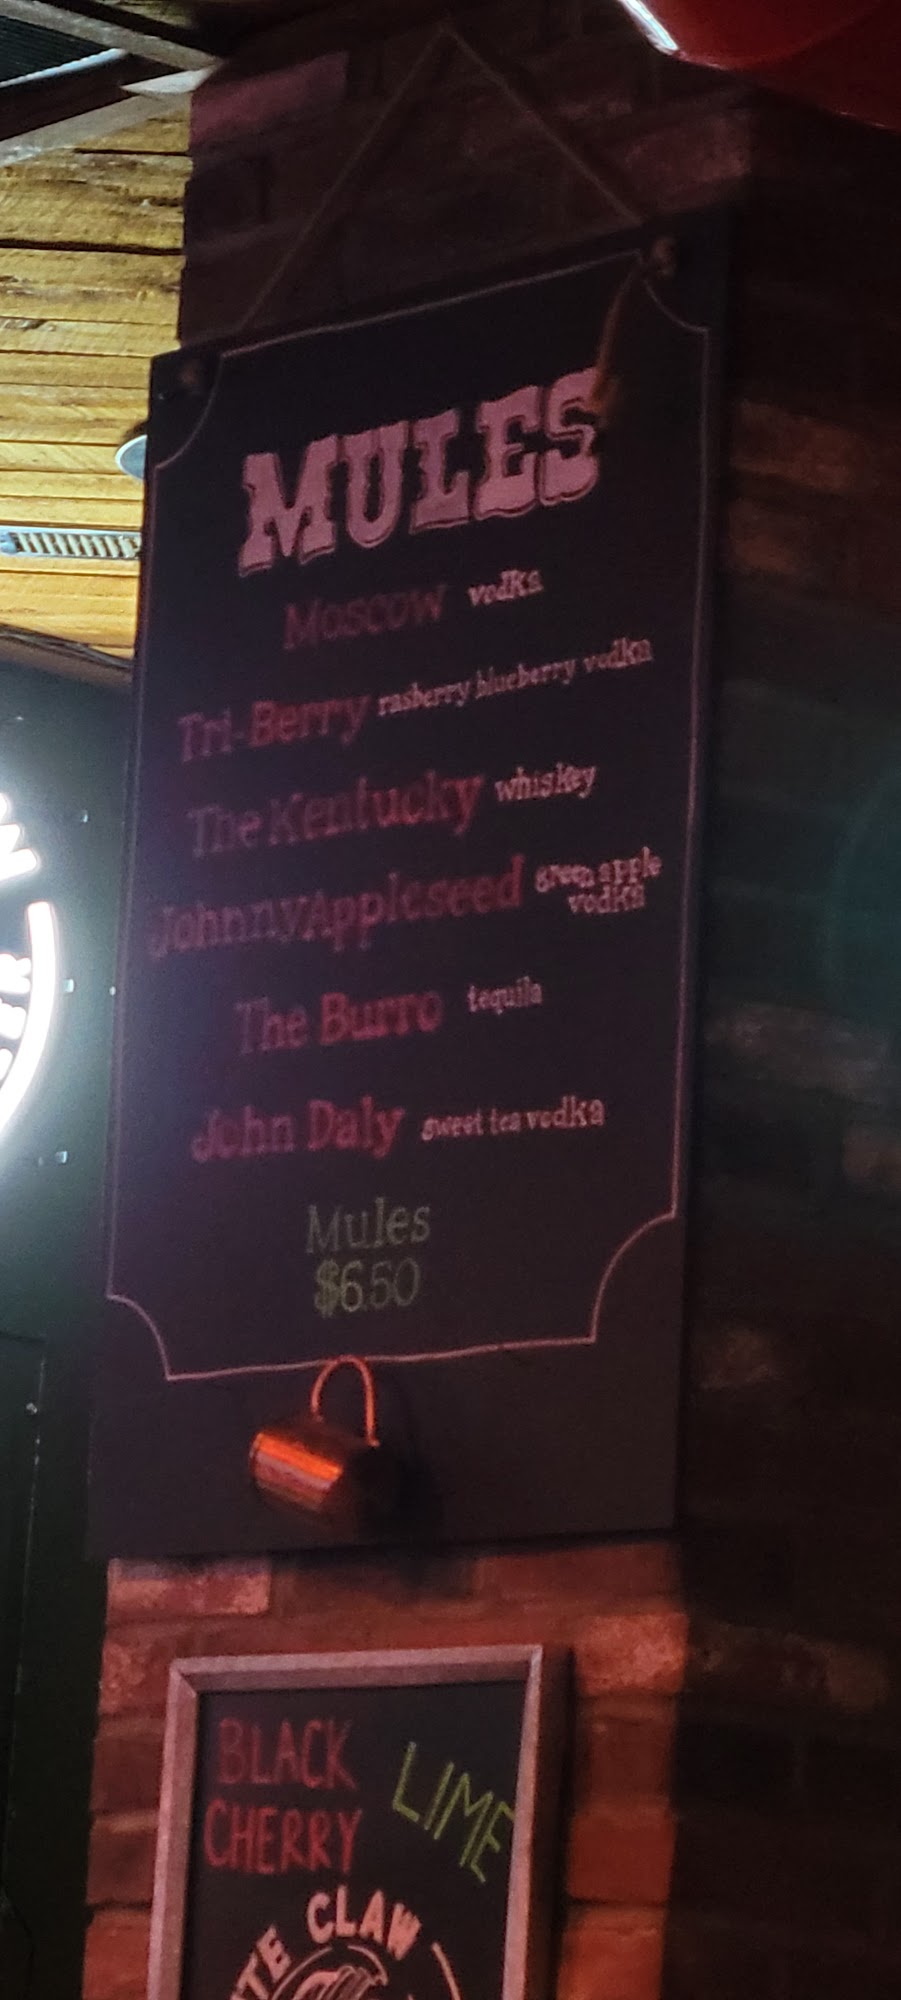 MULES
Moscow vodka
Tri-Berry rasberry blueberry vodka
The Kentucky whiskey
Johnny Appleseed green apple
vodka
The Burro tequila
John Daly sweet tea vodka
Mules
$6.50
BLACK LIME
CHERRY
CLAW